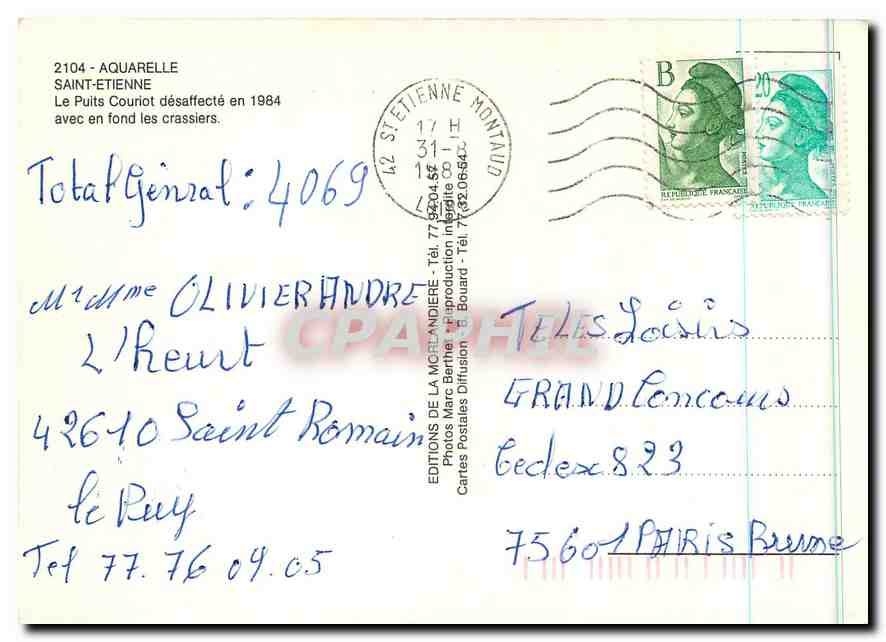 2104 - AQUARELLE
SAINT-ETIENNE
Le Puits Couriot désaffecté en 1984
avec en fond les crassiers.
Total Génral : 4069
Mr Mme OLIVIER ANDRE
L'heurt
42610 Saint Romain
le Puy
Tel 77.76 09.05
EDITIONS DE LA MORLANDIERE - Tél. 77.94.04.57
Photos Marc Berthet - Reproduction interdite
Cartes Postales Diffusion - G. Bouard - Tél. 77.32.06.54
42 ST ETIENNE MONTAUD
17 H
31 -
B
REPUBLIQUE FRANÇAISE
20
REPUBLIQUE FRANÇAISE
TELES Loisirs
GRAND Concours
Cedex 823
75601 PARIS Brune
CPAPHIL